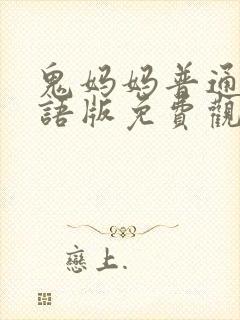 鬼妈妈普通
語版免費觀
戀上.